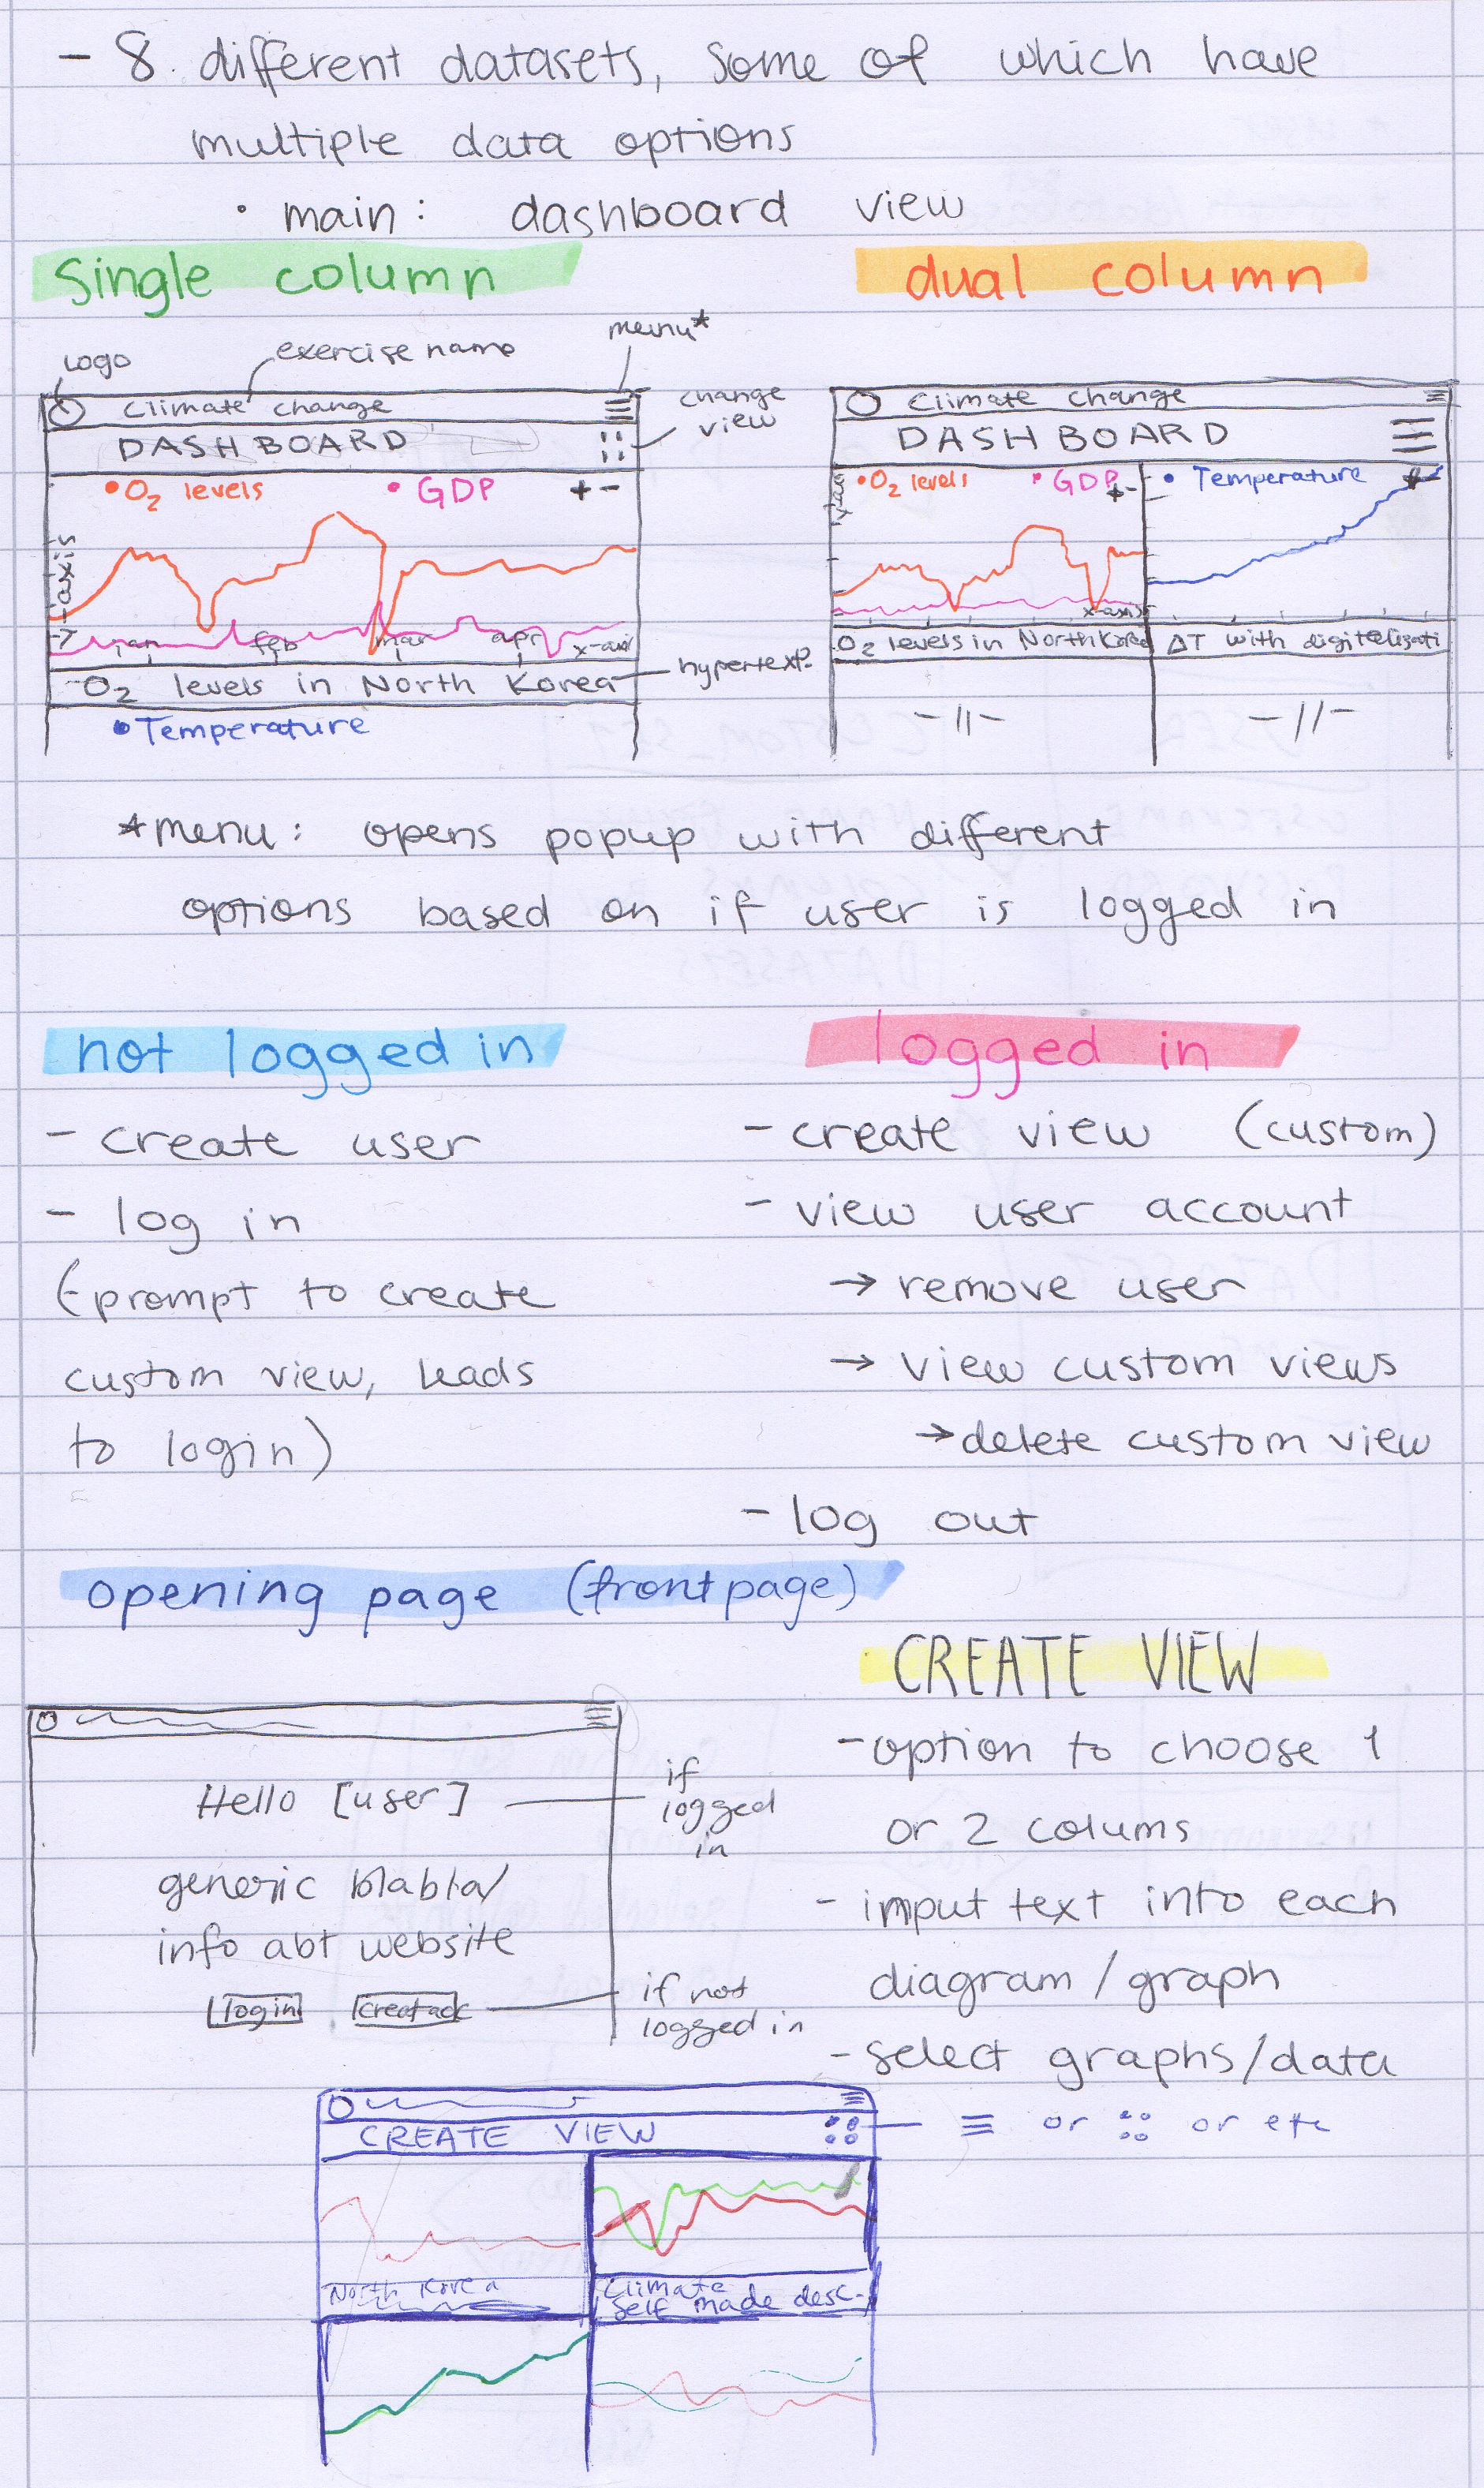 - 8. different datasets, some of which have
multiple data options
• main: dashboard view
single column
dual column
Logo
exercise name
menu*
climate change
change
view
DASHBOARD
• O2 levels
• GDP
+ -
y-axis
jan
feb
mar
apr
x-axis
O2 levels in North Korea
hypertext?
• Temperature
climate change
DASHBOARD
• O2 levels
• GDP
+-
• Temperature
x-axis
O2 levels in North Korea
ΔT with digitelisati
-||-
-//-
*menu: opens popup with different
options based on if user is logged in
not logged in
- create user
- log in
(-prompt to create
custom view, leads
to login)
logged in
- create view (custom)
- view user account
→ remove user
→ view custom views
→ delete custom view
- log out
opening page (frontpage)
Hello [user]
if
logged
in
generic blabla/
info abt website
login
creat acc
if not
logged in
CREATE VIEW
- option to choose 1
or 2 colums
- input text into each
diagram/graph
- select graphs/data
CREATE VIEW
≡ or :: or etc
North Korea
Climate
self made desc.